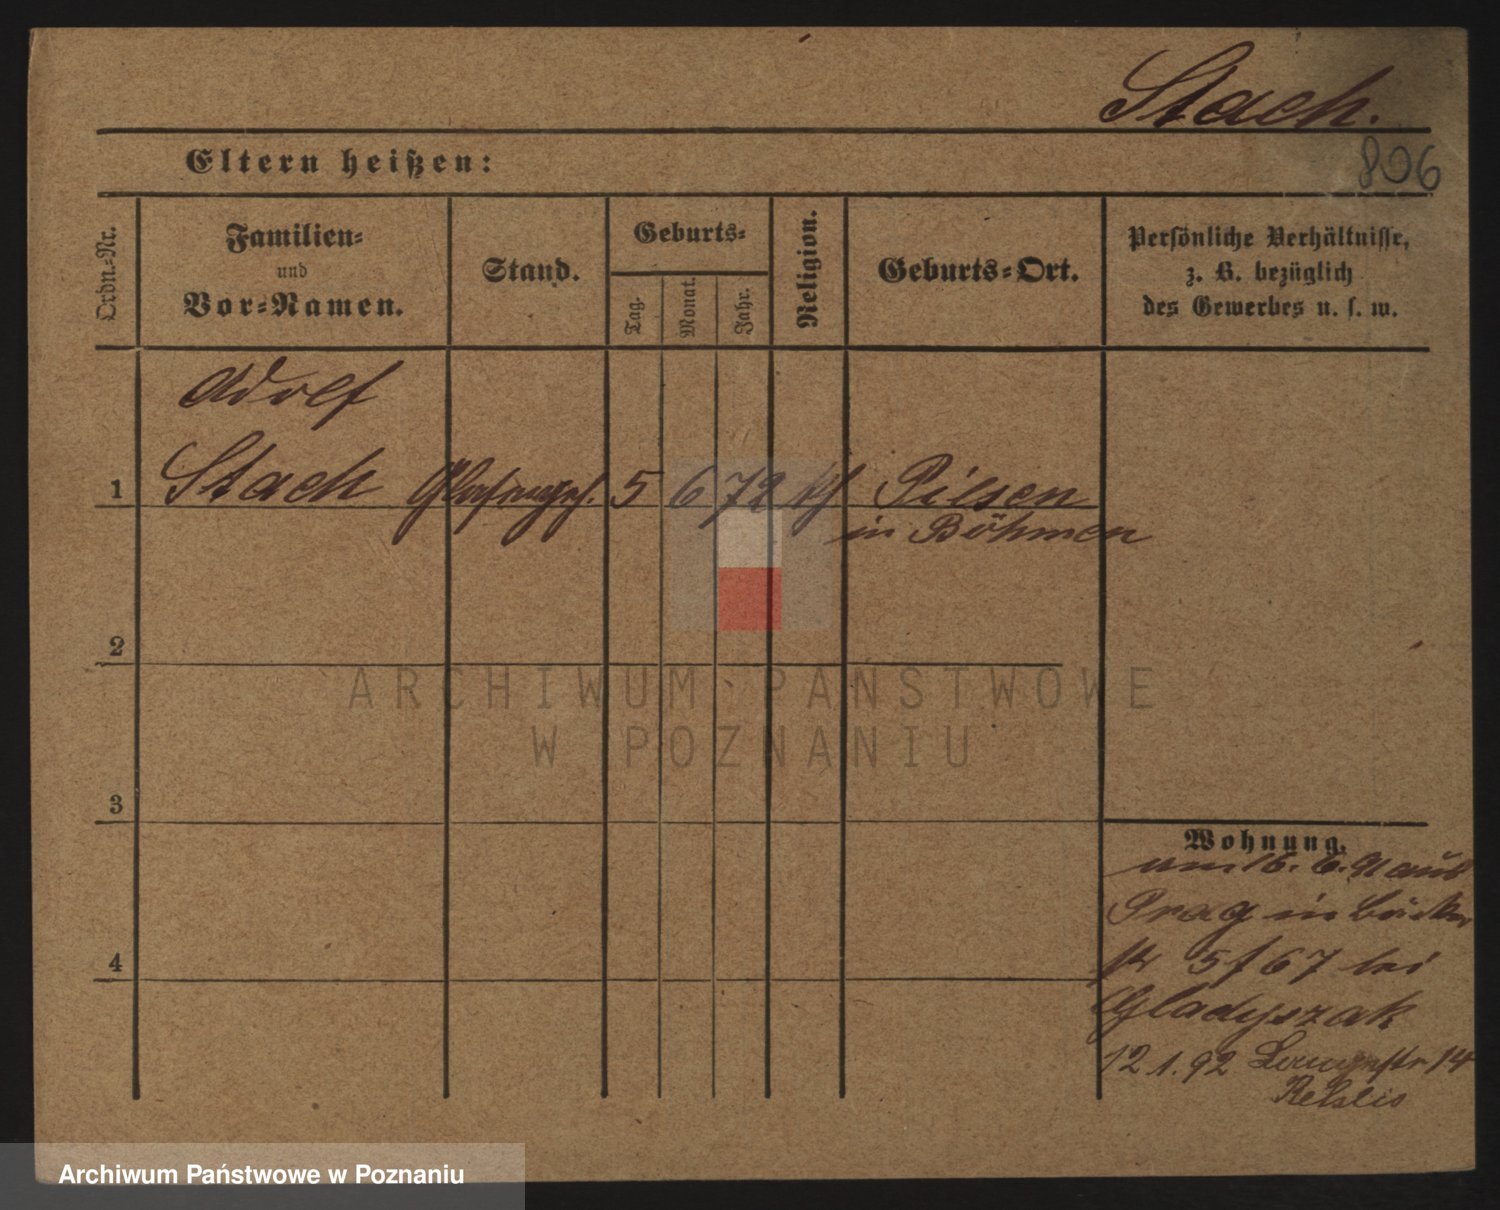 Stach.
Eltern heißen:
806
Ordn.-Nr.
Familien-
und
Vor-Namen.
Stand.
Geburts-
Tag.
Monat.
Jahr.
Religion.
Geburts-Ort.
Persönliche Verhältnisse,
z. B. bezüglich
des Gewerbes u. s. w.
Adolf
1 Stach 5 6 72 Pilsen
in Böhmen
2
ARCHIWUM PAŃSTWOWE
W POZNANIU
3
Wohnung.
am 16. 6. 91 aus
Prag in
5/67 bei
Gladyszak
4
12.1.92 14
Archiwum Państwowe w Poznaniu